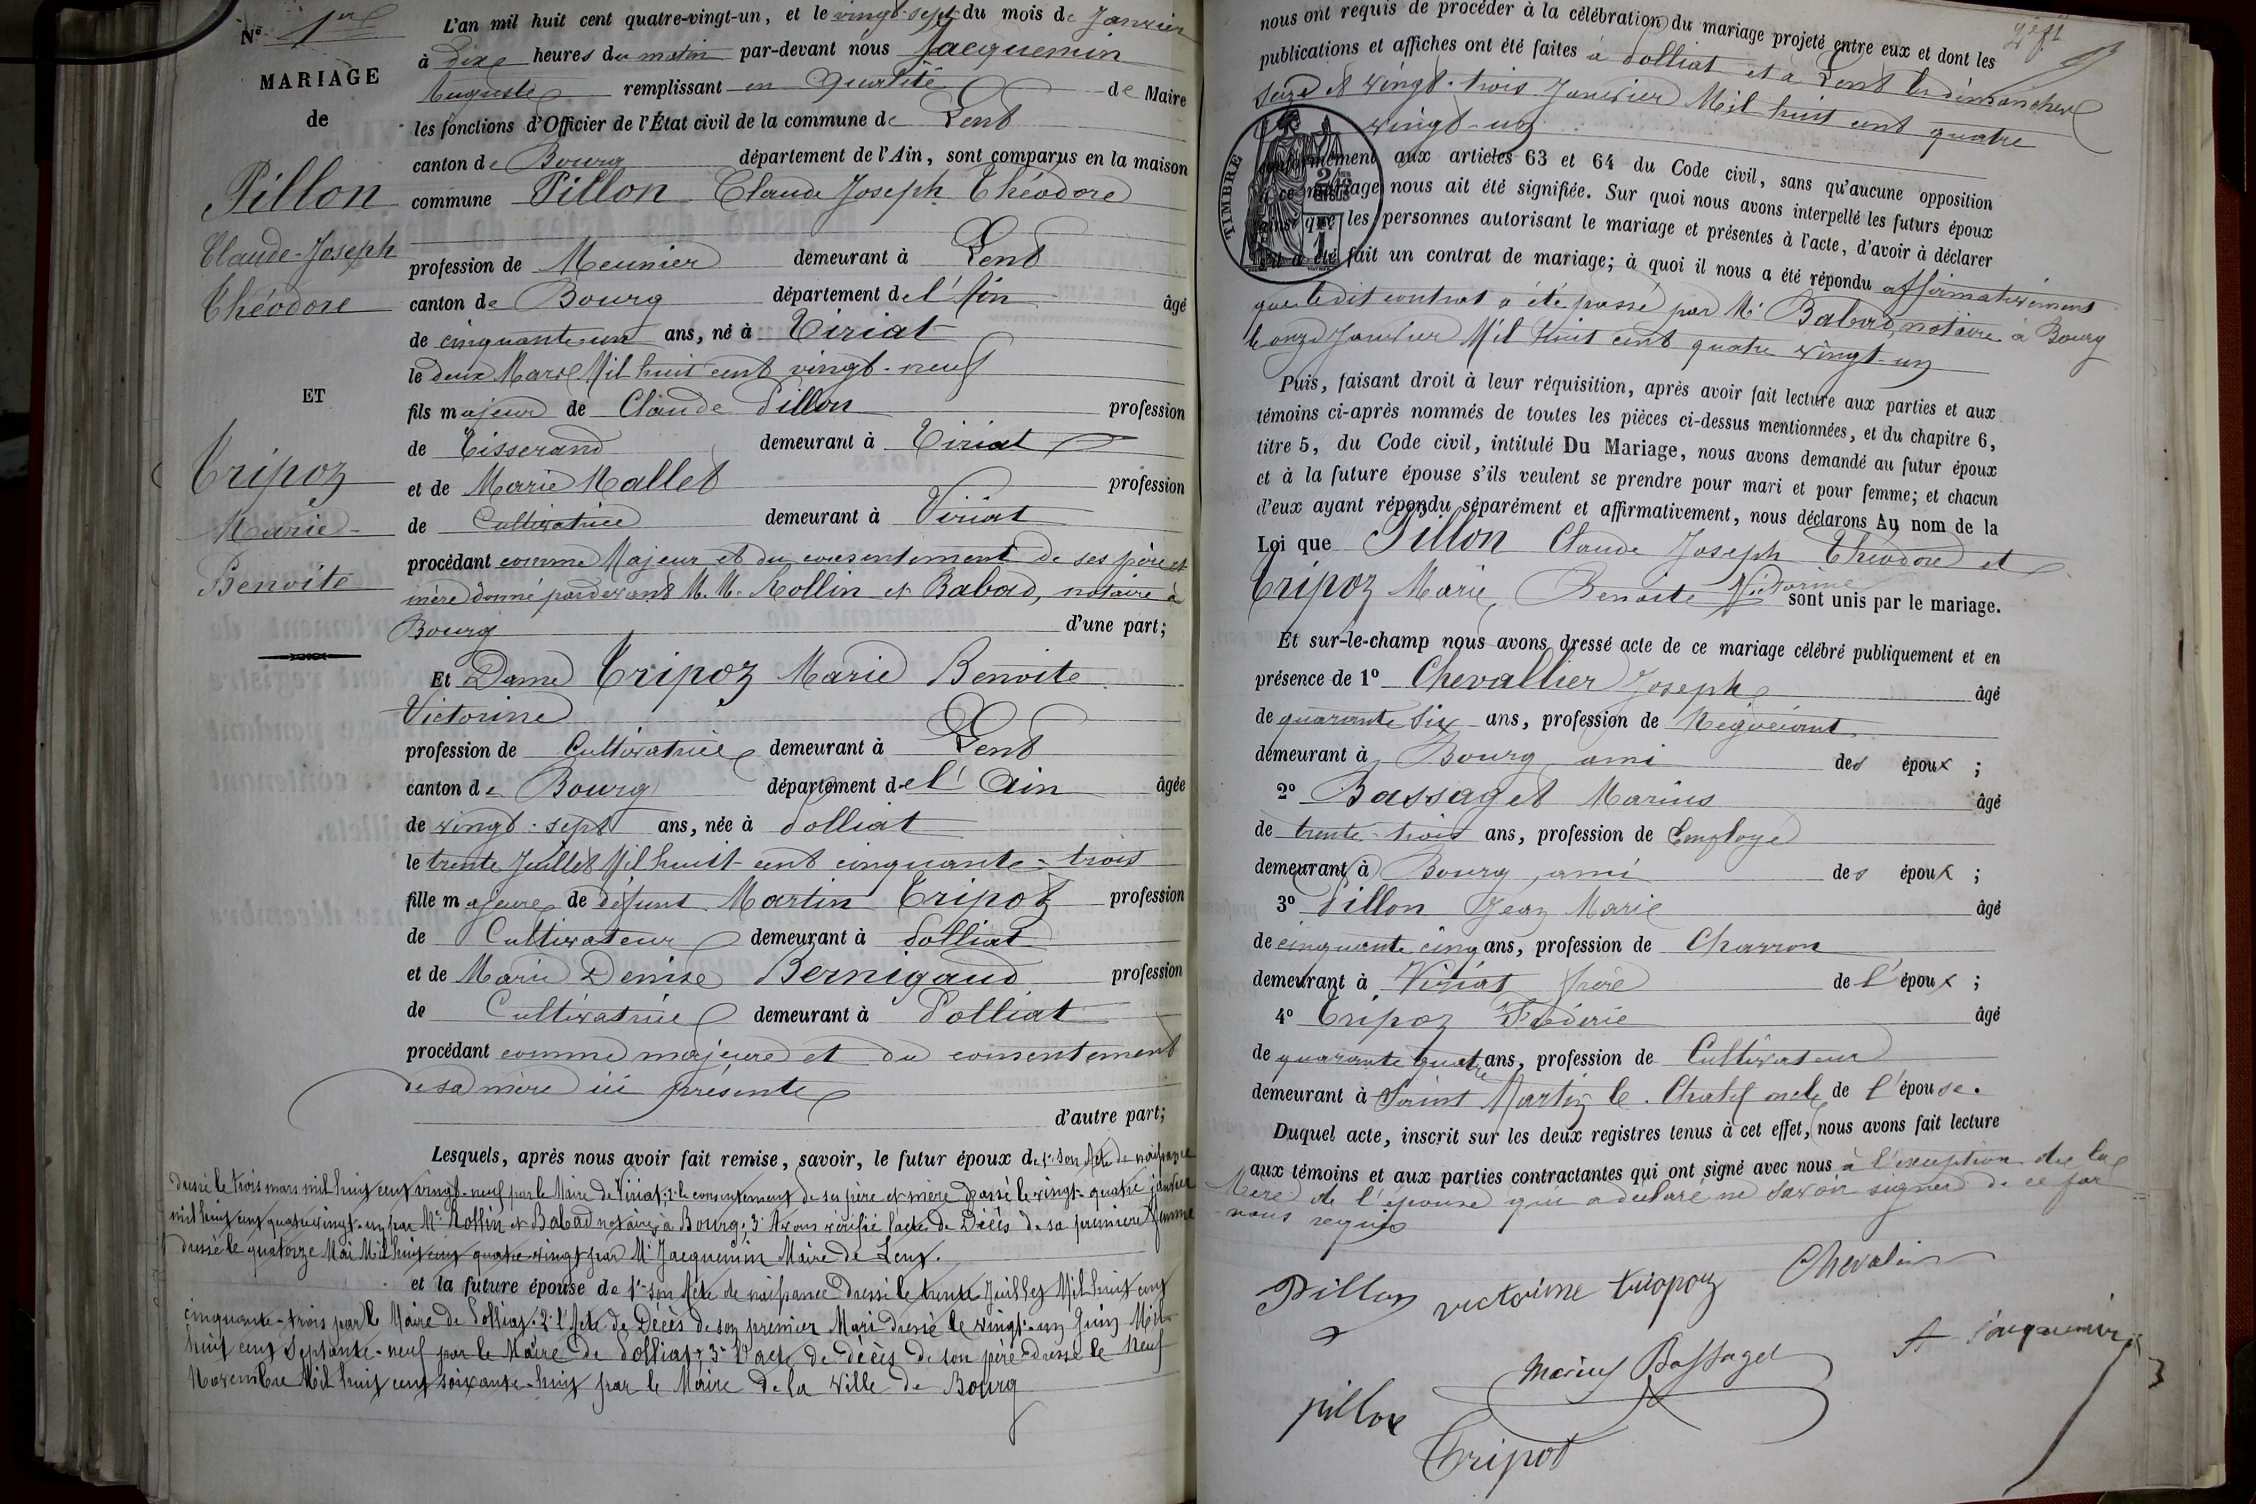 N° 1er
MARIAGE
de
Pillon
Claude-Joseph
Théodore
ET
Tripoz
Marie
Benoite
L'an mil huit cent quatre-vingt-un, et le vingt-sept du mois de Janvier
à Dix heures du matin par-devant nous Jacquemin
Auguste remplissant en qualité de Maire
les fonctions d'Officier de l'État civil de la commune de Lent
canton de Bourg département de l'Ain, sont comparus en la maison
commune Pillon Claude Joseph Théodore
profession de Meunier demeurant à Lent
canton de Bourg département de l'Ain âgé
de cinquante-un ans, né à Viriat
le deux Mars Mil huit cent vingt-neuf
fils majeur de Claude Pillon profession
de Tisserand demeurant à Viriat
et de Marie Mallet profession
de Cultivatrice demeurant à Viriat
procédant comme Majeur et du consentement de ses père et
mère donné par devant M. M. Rollin et Babad, notaire à
Bourg d'une part;
Et Dame Tripoz Marie Benoite
Victorine
profession de Cultivatrice demeurant à Lent
canton de Bourg département de l'Ain âgée
de vingt-sept ans, née à Polliat
le trente Juillet Mil huit cent cinquante-trois
fille majeure de défunt Martin Tripoz profession
de Cultivateur demeurant à Polliat
et de Marie Denise Bernigaud profession
de Cultivatrice demeurant à Polliat
procédant comme majeure et du consentement
de sa mère ici présente
d'autre part;
Lesquels, après nous avoir fait remise, savoir, le futur époux de 1° son Acte de naissance
dressé le trois mars mil huit cent vingt-neuf par le Maire de Viriat; 2° le consentement de ses père et mère passé le vingt-quatre janvier
mil huit cent quatre vingt-un par Me Rollin et Babad notaires à Bourg; 3° Avons vérifié l'acte de Décès de sa première femme
dressé le quatorze Mai Mil huit cent quatre-vingt par Mr Jacquemin Maire de Lent.
et la future épouse de 1° son Acte de naissance dressé le trente Juillet Mil huit cent
cinquante-trois par le Maire de Polliat. 2° l'Acte de Décès de son premier Mari dressé le vingt-un Juin Mil
huit cent Septante-neuf par le Maire de Polliat; 3° l'acte de décès de son père dressé le Neuf
Novembre Mil huit cent soixante-huit par le Maire de la ville de Bourg
nous ont requis de procéder à la célébration du mariage projeté entre eux et dont les
publications et affiches ont été faites à Polliat et à Lent les dimanches
Seize et vingt-trois Janvier Mil huit cent quatre
vingt-un
TIMBRE
conformément aux articles 63 et 64 du Code civil, sans qu'aucune opposition
à ce mariage nous ait été signifiée. Sur quoi nous avons interpellé les futurs époux
ainsi que les personnes autorisant le mariage et présentes à l'acte, d'avoir à déclarer
s'il a été fait un contrat de mariage; à quoi il nous a été répondu affirmativement
que ledit contrat a été passé par Me Babad, notaire à Bourg
le onze Janvier Mil huit cent quatre vingt-un
Puis, faisant droit à leur réquisition, après avoir fait lecture aux parties et aux
témoins ci-après nommés de toutes les pièces ci-dessus mentionnées, et du chapitre 6,
titre 5, du Code civil, intitulé Du Mariage, nous avons demandé au futur époux
et à la future épouse s'ils veulent se prendre pour mari et pour femme; et chacun
d'eux ayant répondu séparément et affirmativement, nous déclarons Au nom de la
Loi que Pillon Claude Joseph Théodore et
Tripoz Marie Benoite Victorine sont unis par le mariage.
Et sur-le-champ nous avons dressé acte de ce mariage célébré publiquement et en
présence de 1° Chevallier Joseph âgé
de quarante six ans, profession de Négociant
demeurant à Bourg ami des époux;
2° Bassaget Marius âgé
de trente-trois ans, profession de Employé
demeurant à Bourg, ami des époux;
3° Pillon Jean Marie âgé
de cinquante cinq ans, profession de Charron
demeurant à Viriat frère de l'époux;
4° Tripoz Frédéric âgé
de quarante quatre ans, profession de Cultivateur
demeurant à Saint Martin le Chatel oncle de l'épouse.
Duquel acte, inscrit sur les deux registres tenus à cet effet, nous avons fait lecture
aux témoins et aux parties contractantes qui ont signé avec nous à l'exception de la
Mère de l'épouse qui a déclaré ne savoir signer de ce par
nous requis
Pillon victorine tripoz Chevalier
Marius Bassaget A Jacquemin
pillon
Tripoz